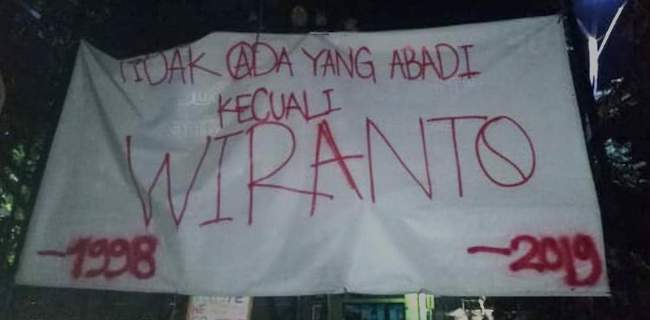 TIDAK ADA YANG ABADI
KECUALI
WIRANTO
-1998 -2019